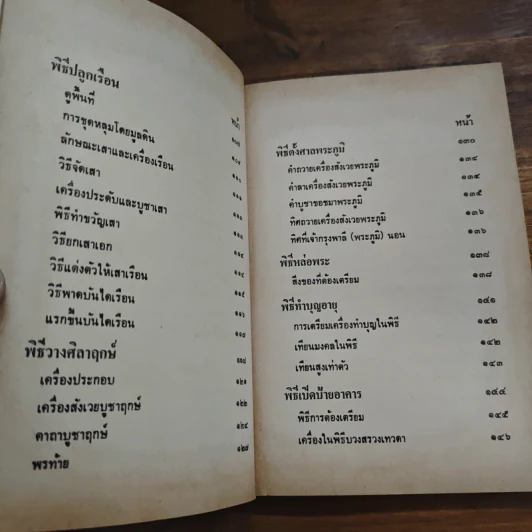 พิธีปลูกเรือน
หน้า
ดูพื้นที่
การขุดหลุมโดยมูลดิน
ลักษณะเสาและเครื่องเรือน
วิธีจัดเสา
เครื่องประดับและบูชาเสา
พิธีทำขวัญเสา
วิธียกเสาเอก
วิธีแต่งตัวให้เสาเรือน
วิธีพาดบันไดเรือน
แรกขึ้นบันไดเรือน
พิธีวางศิลาฤกษ์
เครื่องประกอบ ๑๒๑
เครื่องสังเวยบูชาฤกษ์ ๑๒๒
คาถาบูชาฤกษ์ ๑๒๔
พรท้าย
หน้า
พิธีตั้งศาลพระภูมิ ๑๓๐
คำถวายเครื่องสังเวยพระภูมิ ๑๓๔
คำลาเครื่องสังเวยพระภูมิ ๑๓๕
คำบูชาขอขมาพระภูมิ ๑๓๕
ทิศถวายเครื่องสังเวยพระภูมิ ๑๓๖
ทิศที่เจ้ากรุงพาลี (พระภูมิ) นอน ๑๓๖
พิธีหล่อพระ ๑๓๘
สิ่งของที่ต้องเตรียม ๑๓๘
พิธีทำบุญอายุ ๑๔๑
การเตรียมเครื่องทำบุญในพิธี ๑๔๒
เทียนมงคลในพิธี ๑๔๒
เทียนสูงเท่าตัว ๑๔๓
พิธีเปิดป้ายอาคาร ๑๔๔
พิธีการต้องเตรียม ๑๔๕
เครื่องในพิธีบวงสรวงเทวดา ๑๔๖